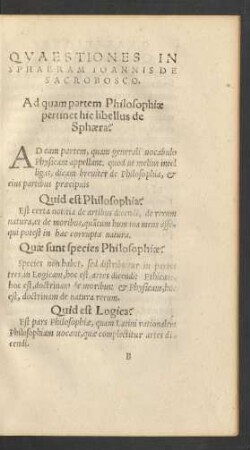 QVAESTIONES IN
SPHAERAM IOANNIS DE
SACROBOSCO.
Ad quam partem Philosophiæ
pertinet hic libellus de
Sphæra?
AD eam partem, quam generali uocabulo
Physicam appellant. quod ut melius intel
ligas, dicam breuiter de Philosophia, &
eius partibus præcipuis
Quid est Philosophia?
Est certa notitia de artibus dicendi, de rerum
natura, et de moribus, quātum humana mens assequi
potest in hac corrupta natura.
Quæ sunt species Philosophiæ?
Species non habet, sed distribuitur in partes
tres, in Logicam, hoc est, artes dicendi Ethicam,
hoc est, doctrinam de moribus & Physicam, hoc
est, doctrinam de natura rerum.
Quid est Logica?
Est pars Philosophiæ, quam Latini rationalem
Philosophiam uocant, quæ complectitur artes di
cendi.
B